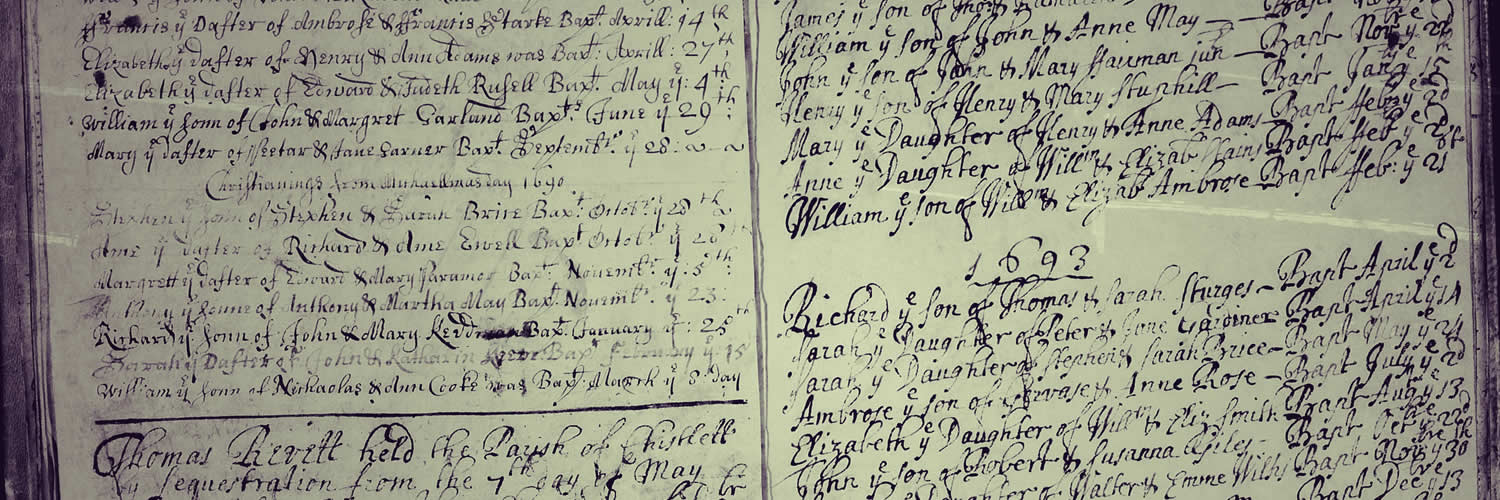 ffrancis yͤ Dafter of Ambrose & ffrancis Starke Baxᵗ. Aprill: 14ᵗʰ
Elizabeth yͤ dafter of Henry & Ann Adams was Baxᵗ: Aprill: 27ᵗʰ
Elizabeth yͤ dafter of Edward & Judeth Rusell Baxᵗ. May yͤ: 4ᵗʰ
William yͤ sonn of John & Margret Garland Baxᵗ: June yͤ 29ᵗʰ
Mary yͤ dafter of & Jane Baxᵗ. Septembʳ: yͤ 28:
Christianings from Michallmas day 1690
Stephen yͤ sonn of Stephen & Sarah Brice Baxᵗ. Octobʳ: yͤ 28ᵗʰ
Ame yͤ dafter of Richard & Ame Ewell Baxᵗ. Octobʳ: yͤ 26ᵗʰ
Margrett yͤ dafter of Edward & Mary Paramor Baxᵗ. Novembʳ. yͤ: 5ᵗʰ
Anthony yͤ sonne of Anthony & Martha May Baxᵗ. Novembʳ. yͤ 23:
Richard yͤ sonn of John & Mary Baxᵗ. January yͤ: 25ᵗʰ
Sarah yͤ Dafter of John & Katharin Baxᵗ. February yͤ: 15
William yͤ sonn of Nichaolas & Ann Cooke was Baxᵗ: March yͤ 8 day
Thomas Revitt held the Parish of Chistlett
by Sequestration from the 7ᵗʰ day of May
James yͤ son of
William yͤ son of John & Anne May — Bapt Novbre yͤ
John yͤ son of John & Mary Hauman junͬ — Bapt Janͬ yͤ 15
Henry yͤ son of Henry & Mary Stuphill — Bapt ffebͬ yͤ 2d
Mary yͤ Daughter of Henry & Anne Adams Bapt ffeb yͤ
Anne yͤ Daughter of Willm & Elizab Bapt Feb yͤ
William yͤ son of Willᵐ & Elizab Ambrose Bapt ffeb: yͤ 21
1693
Richard yͤ son of Thomas & Sarah Sturges — Bapt April yͤ 2d
Sarah yͤ Daughter of Peter & Jane Gardiner Bapt April yͤ 14
Sarah yͤ Daughter of Stephen & Sarah Brice — Bapt May yͤ 24
Ambrose yͤ son of Gervase & Anne Rose — Bapt July yͤ 2d
Elizabeth yͤ Daughter of Willᵐ & Eliz Smith Bapt Aug yͤ 13
John yͤ son of Robert & Susanna Giles — Bapt Octbre yͤ 22d
Daughter of Walter & Emme Wilks Bapt Novbre yͤ 30th
Bapt Decbre yͤ 13